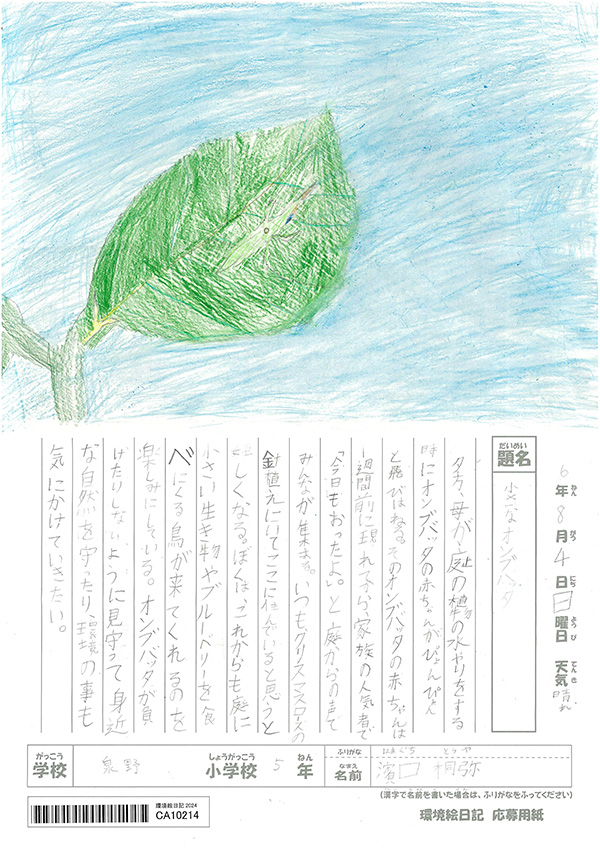 6年8月4日日曜日 天気晴れ
ねん がつ にち ようび てんき
だいめい
題名
小さなオンブバッタ
夕方、母が庭の植物の水やりをする
時にオンブバッタの赤ちゃんがぴょんぴょん
と飛びはねる。そのオンブバッタの赤ちゃんは
一週間前に現れてから、家族の人気者で
「今日もおったよ。」と庭からの声で
みんなが集まる。いつもクリスマスローズの
鉢植えにいてここに住んでいると思うと
嬉しくなる。ぼくは、これからも庭に
小さい生き物やブルーベリーを食
べにくる鳥が来てくれるのを
楽しみにしている。オンブバッタが負
けたりしないように見守って身近
な自然を守ったり、環境の事も
気にかけていきたい。
がっこう しょうがっこう ねん
学校 泉野 小学校 5年
ふりがな はまぐち とうや
なまえ
名前 濱口 桐弥
(漢字で名前を書いた場合は、ふりがなをふってください)
環境絵日記2024
CA10214
環境絵日記 応募用紙